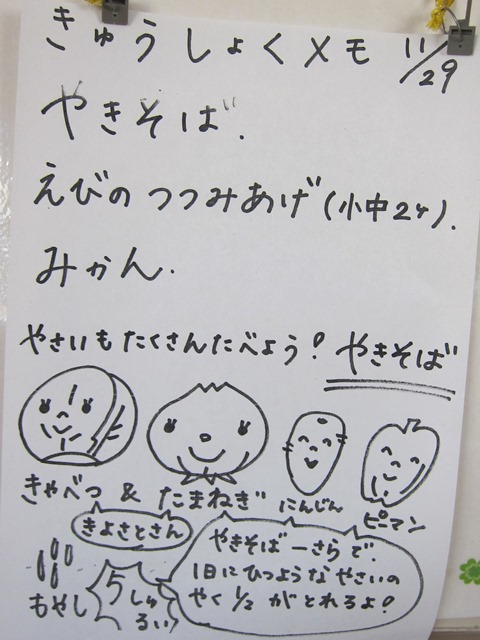 きゅうしょくメモ 11/29
やきそば.
えびのつつみあげ(小中2ケ).
みかん.
やさいもたくさんたべよう! やきそば
きゃべつ & たまねぎ にんじん ピーマン
きよさとさん
もやし
5しゅるい
やきそば一さらで.
1日にひつようなやさいの
やく1/2がとれるよ!